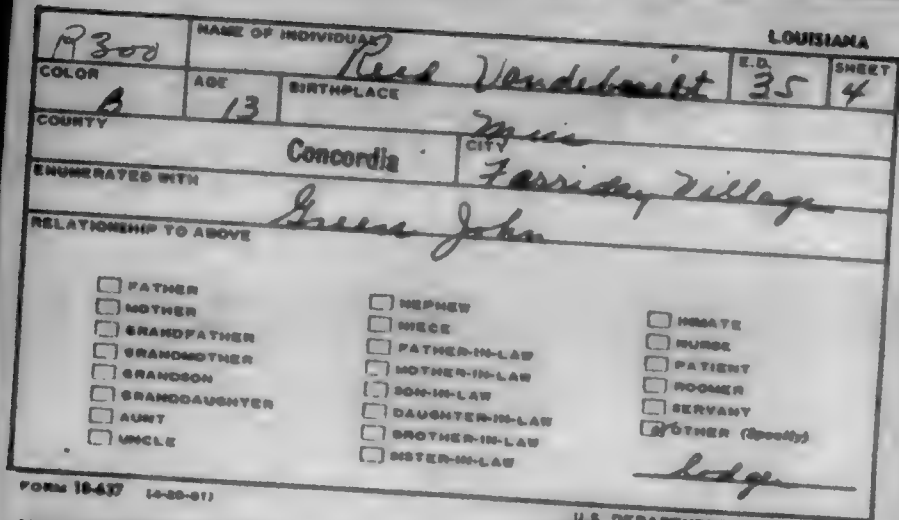 LOUISIANA
R300 NAME OF INDIVIDUAL Reed Vandebuilt E.D. 35 SHEET 4
COLOR B AGE 13 BIRTHPLACE Miss
COUNTY Concordia CITY Farriday Village
ENUMERATED WITH Green John
RELATIONSHIP TO ABOVE
FATHER
MOTHER
GRANDFATHER
GRANDMOTHER
GRANDSON
GRANDDAUGHTER
AUNT
UNCLE
NEPHEW
NIECE
FATHER-IN-LAW
MOTHER-IN-LAW
SON-IN-LAW
DAUGHTER-IN-LAW
BROTHER-IN-LAW
SISTER-IN-LAW
INMATE
NURSE
PATIENT
ROOMER
SERVANT
OTHER (Specify)
Lodge
FORM 18-637 (4-20-61)
U.S.